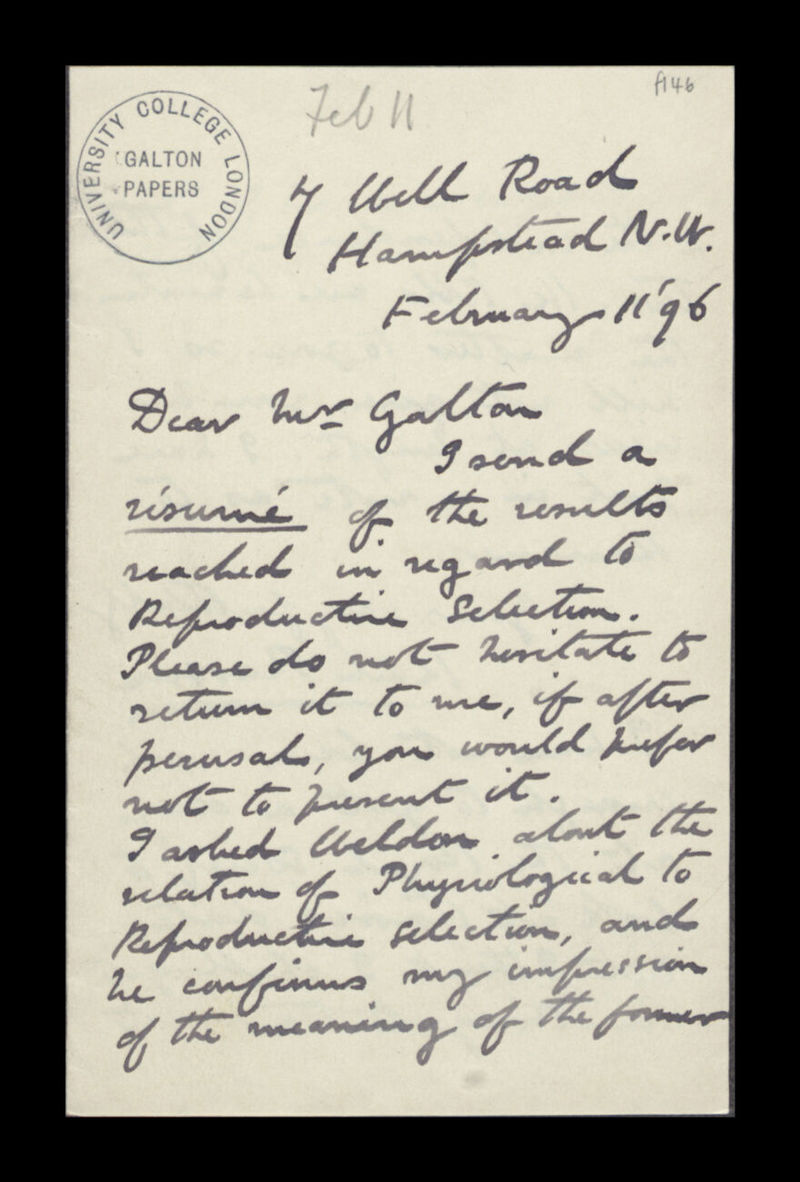 f146
Feb 11
UNIVERSITY COLLEGE LONDON
GALTON
PAPERS
7 Well Road
Hampstead N.W.
February 11 '96
Dear Mr Galton
I send a
résumé of the results
reached in regard to
Reproductive Selection.
Please do not hesitate to
return it to me, if after
perusal, you would prefer
not to present it.
I asked Weldon about the
relation of Physiological to
Reproductive selection, and
he confirms my impression
of the meaning of the former